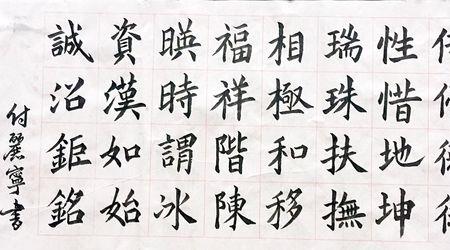 性惜地坤
瑞珠扶撫
相極和移
福祥階陳
暎時謂冰
資漢如始
誠沿鉅銘
付麗寧書